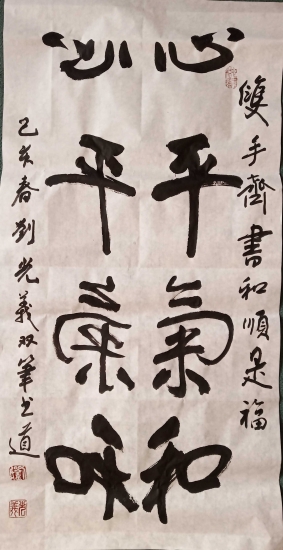 雙手齊書和順是福
心平氣和
心平氣和
己亥春劉光義双筆书道